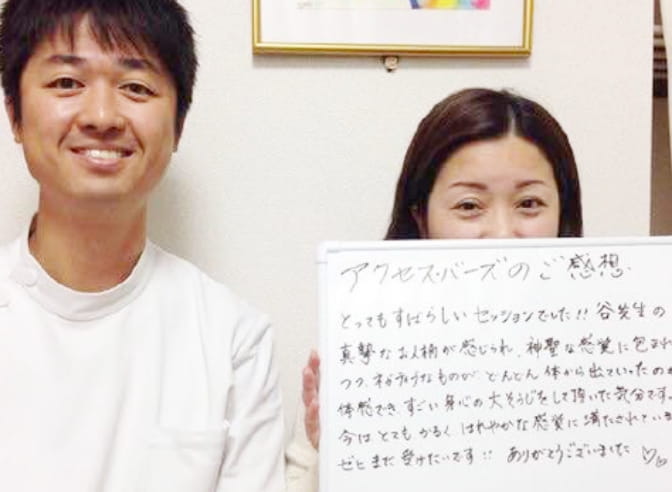 アクセス・バーズのご感想
とってもすばらしいセッションでした!! 谷先生の
真摯なお人柄が感じられ、神聖な感覚に包まれ
つつ、ネガティブなものが、どんどん体から出ていったのが
体感でき、すごい身心の大そうじをして頂いた気分です。
今はとてもかるく、はれやかな感覚に満たされていま
ぜひまた受けたいです!! ありがとうございました♡